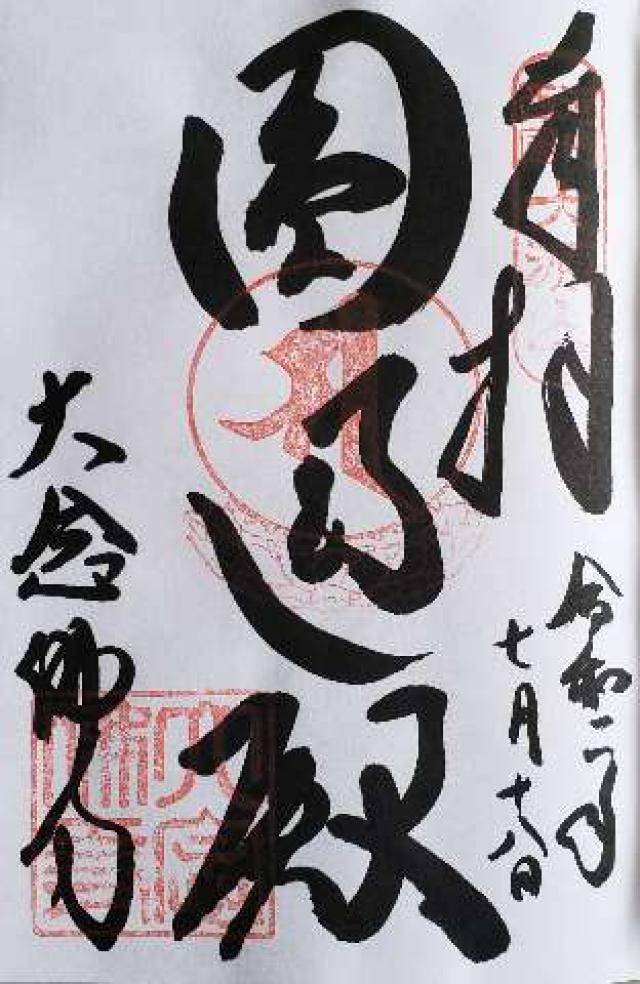 奉拝
令和二年
七月十八日
圓通殿
大念佛寺